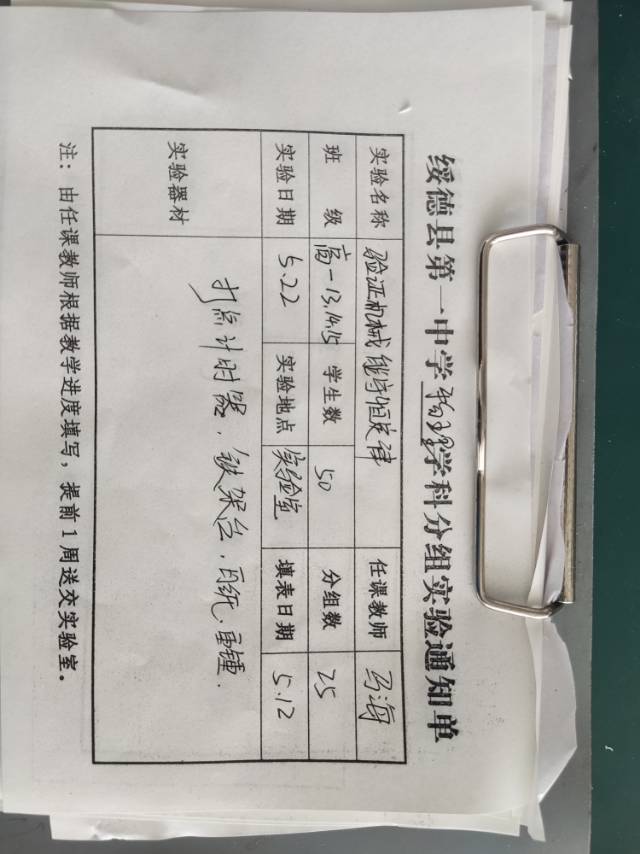 绥德县第一中学物理学科分组实验通知单
实验名称 验证机械能守恒定律 任课教师 马海
班 级 高一13,14,15 学生数 50 分组数 25
实验日期 5.22 实验地点 实验室 填表日期 5.12
实验器材 打点计时器，铁架台，白纸，重锤.
注：由任课教师根据教学进度填写，提前1周送交实验室。